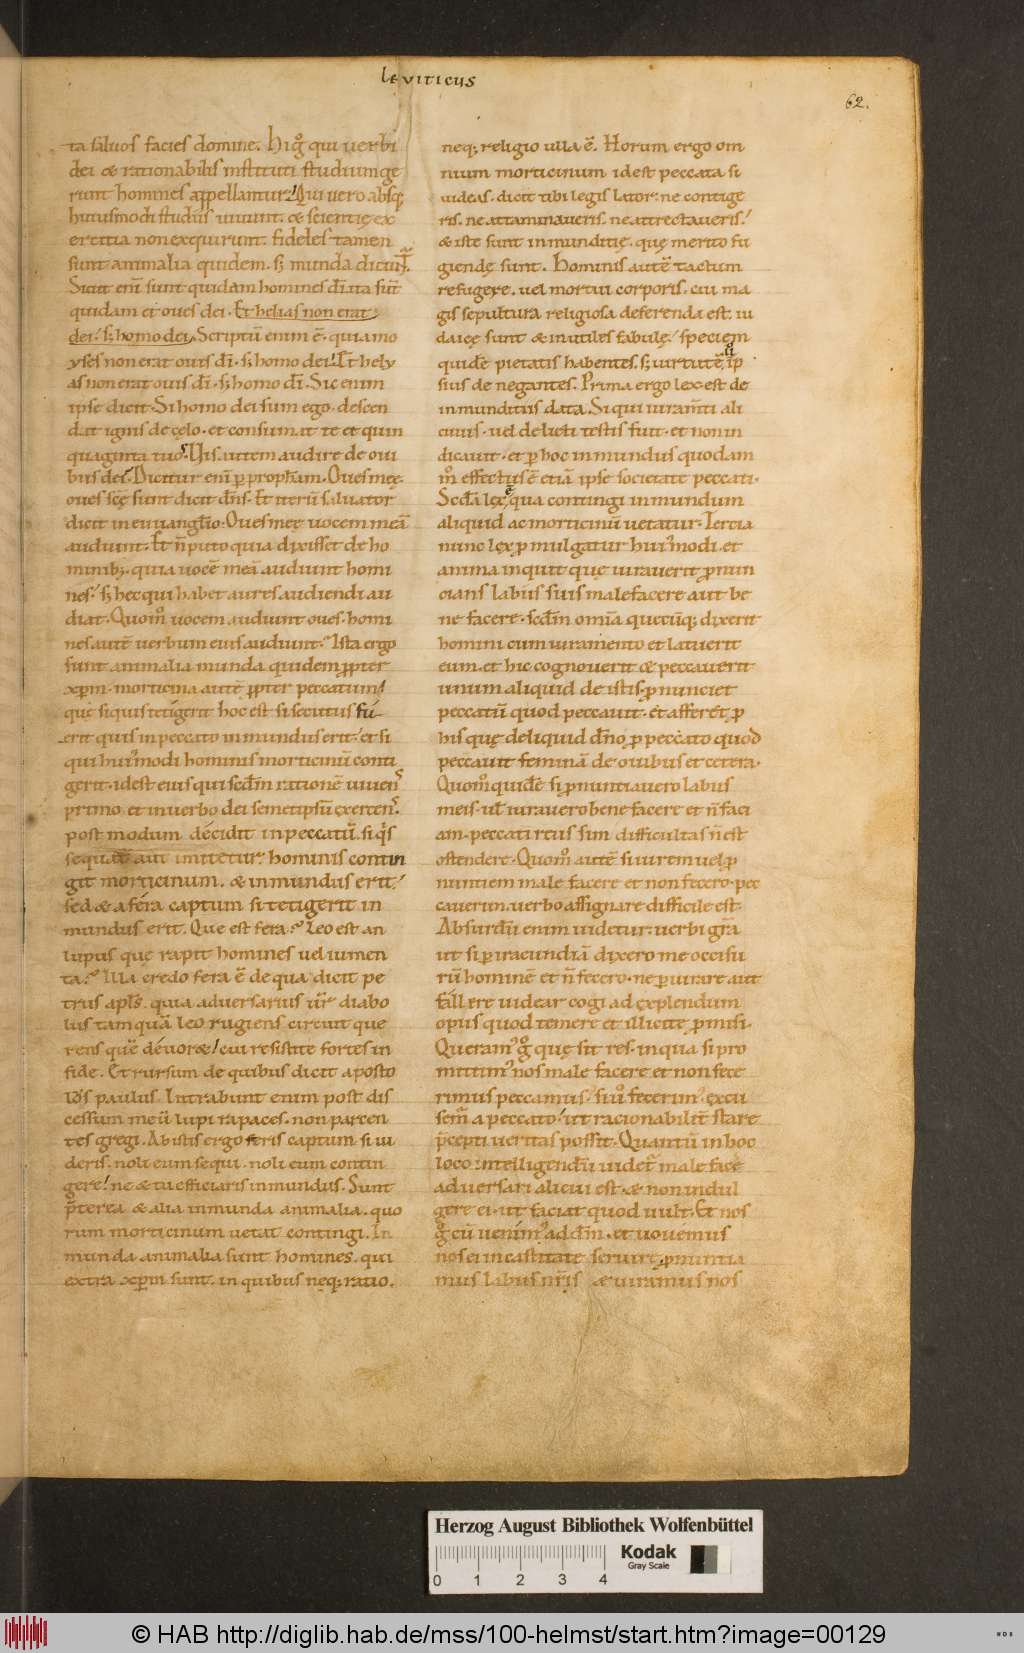 leviticus
62.
ta saluos facies domine. Hi g̊ qui uerbi
dei & rationabilis instituti studium ge
runt homines appellantur. Qui uero absq;
huiusmodi studiis uiuunt. & scientię ex
ercitia non exquirunt. fideles tamen
sunt animalia quidem. s; munda dicunt̃.
Sicut eni͂ sunt quidam homines di͂. ita su͂t
quidam et oues dei. Et helias non erat
dei. s; homo dei. Scriptu͂ enim e͂. quia mo
yses non erat ouis di͂. s; homo dei. Et hely
as non erat ouis di͂. s; homo di͂. Sic enim
ipse dicit. Si homo dei sum ego. descen
dat ignis de cęlo. et consumat te et quin
quaginta tuos. His autem audire de oui
bus dei. Dicitur eni͂ p̱ proph͂am. Oues meę.
oues sc͂ę sunt dicit dn͂s. Et iteru͂ saluator
dicit in euuangl͂io. Oues meę uocem mea͂
audiunt. Et n͂ puto quia dixisset de ho
minib; quia uoce͂ mea͂ audiunt homi
nes. s; hec qui habet aures audiendi au
diat. Quom̊ uocem audiunt oues. homi
nes aute͂ uerbum eius audiunt. Ista ergo
sunt animalia munda quidem p̱pter
xp͂m. morticina aute͂ p̱pter peccatum.
quę si quis tetigerit hoc est si secutus fu͂
erit quis in peccato inmundus erit. et si
qui hui᾽modi hominis morticinu͂ conti
gerit. idest eius qui scd͂m ratione͂ uiuen᾽
primo. et in uerbo dei semetipsu͂ exercen᾽.
post modum decidit in peccatu͂. si q͛s
sequat͂ aut imitetur. hominis contin
git morticinum. & inmundus erit.
sed & a fera captum si tetigerit in
mundus erit. Que est fera? Leo est an
lupus quę rapit homines uel iumen
ta? Illa credo fera e͂ de qua dicit pe
trus apl͂s. quia aduersarius ur͂ diabo
lus tamqua͂ leo rugiens circuit que
rens que͂ deuor&. cui resistite fortes in
fide. Et rursum de quibus dicit aposto
lus paulus. Intrabunt enim post dis
cessum meu͂ lupi rapaces. non parcen
tes gregi. Ab istis ergo feris captum si ui
deris. noli eum sequi. noli eum contin
gere. ne & tu efficiaris inmundus. Sunt
p͂terea & alia inmunda animalia. quo
rum morticinum uetat contingi. In
munda animalia sunt homines. qui
extra xp͂m sunt. in quibus neq; ratio.
neq; religio ulla e͂. Horum ergo om
nium morticinum idest peccata si
uideas. dicit tibi legis lator. ne contige
ris. ne attaminaueris. ne attrectaueris.
& iste sunt inmunditię. quę merito fu
giendę sunt. Hominis aute͂ tactum
refugere. uel mortui corporis. cui ma
gis sepultura religiosa deferenda est. iu
daicę sunt & inutiles fabulę. speciem
quide͂ pietatis habentes. s; uirtute͂ ip
sius de negantes. Prima ergo lex est de
inmunditiis data. Si qui iuram͂ti ali
cuius. uel delicti testis fuit. et non in
dicauit. et p̱ hoc inmundus quodam
m̊ effectus e͂ etia͂ ipse societate peccati.
Scd͂a lex e͂ qua contingi inmundum
aliquid ac morticinu͂ uetatur. Tercia
nunc lex p̱mulgatur hui᾽modi. et
anima inquit quę iurauerit p̱nun
cians labiis suis malefacere aut be
ne facere. scd͂m om͂ia quecu͂q; dixerit
homini cum iuramento et latuerit
eum. et hic cognouerit & peccauerit
unum aliquid de istis. p̱nunciet
peccatu͂ quod peccauit. et afferet p̱
his quę deliquid dn͂o p̱ peccato quod
peccauit femina͂ de ouibus et cetera.
Quom̊ quide͂ si p̱nuntiauero labiis
meis. ul͂ iurauero bene facere et n͂ feci
am. peccati reus sim difficultas n͂ est
ostendere. Quom̊ aute͂ si iurem uel p̱
nuntiem male facere et non fecero. pec
cauerim. uerbo assignare difficile est.
Absurdu͂ enim uidetur. uerbi gr͂a
ut si p̱ iracundia͂ dixero me occisu
ru͂ homine͂ et n͂ fecero. ne p̱iurare aut
fallere uidear cogi ad explendum
opus quod temere et illicite p̱misi.
Queram᾽ g̊ quę sit res. in qua si pro
mittim᾽ nos male facere et non fece
rimus peccamus. si ů fecerim᾽. excu
sem᾽ a peccato. ut racionabilit͂ stare
p͂cepti ueritas possit. Quantu͂ in hoc
loco intelligendu͂ uidet͂ male face
aduersari alicui est. & non indul
gere ei. ut faciat quod uult. Et nos
g̊ cu͂ uenim᾽ ad dm͂. et uouemus
nos ei in castitate seruire. p̱nuntia
mus labiis nr͂is & iuramus nos
Herzog August Bibliothek Wolfenbüttel
Kodak
Gray Scale
0 1 2 3 4
© HAB http://diglib.hab.de/mss/100-helmst/start.htm?image=00129